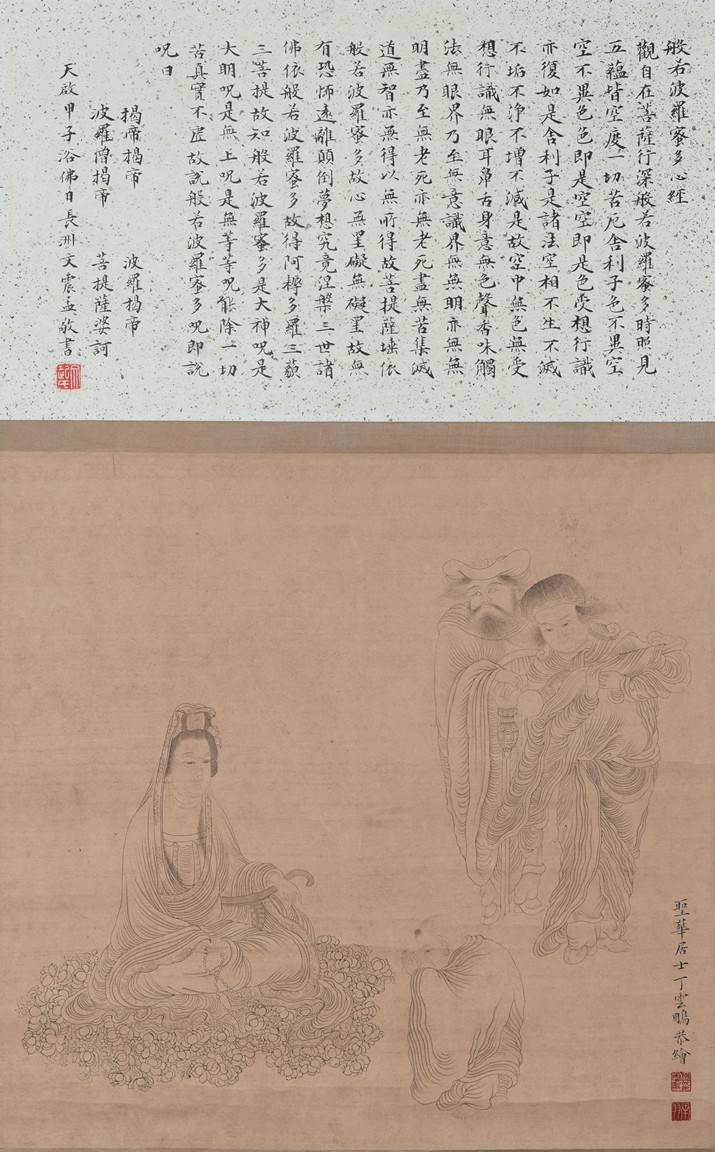 般若波羅蜜多心經
觀自在菩薩行深般若波羅蜜多時照見
五蘊皆空度一切苦厄舍利子色不異空
空不異色色即是空空即是色受想行識
亦復如是舍利子是諸法空相不生不滅
不垢不淨不增不減是故空中無色無受
想行識無眼耳鼻舌身意無色聲香味觸
法無眼界乃至無意識界無無明亦無無
明盡乃至無老死亦無老死盡無苦集滅
道無智亦無得以無所得故菩提薩埵依
般若波羅蜜多故心無罣礙無礙罣故無
有恐怖遠離顛倒夢想究竟涅槃三世諸
佛依般若波羅蜜多故得阿耨多羅三藐
三菩提故知般若波羅蜜多是大神呪是
大明呪是無上呪是無等等呪能除一切
苦真實不虛故說般若波羅蜜多呪即說
呪曰
揭帝揭帝 波羅揭帝
波羅僧揭帝 菩提薩婆訶
天啟甲子浴佛日長洲文震孟敬書
聖華居士丁雲鵬恭繪